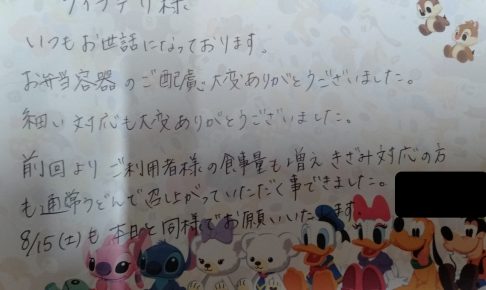 様
いつもお世話になっております。
お弁当容器のご配慮、大変ありがとうございました。
細い対応も大変ありがとうございました。
前回よりご利用者様の食事量も増えきざみ対応の方
も通常うどんで召上がっていただく事できました。
8/15(土)も本日と同様でお願いいたします。